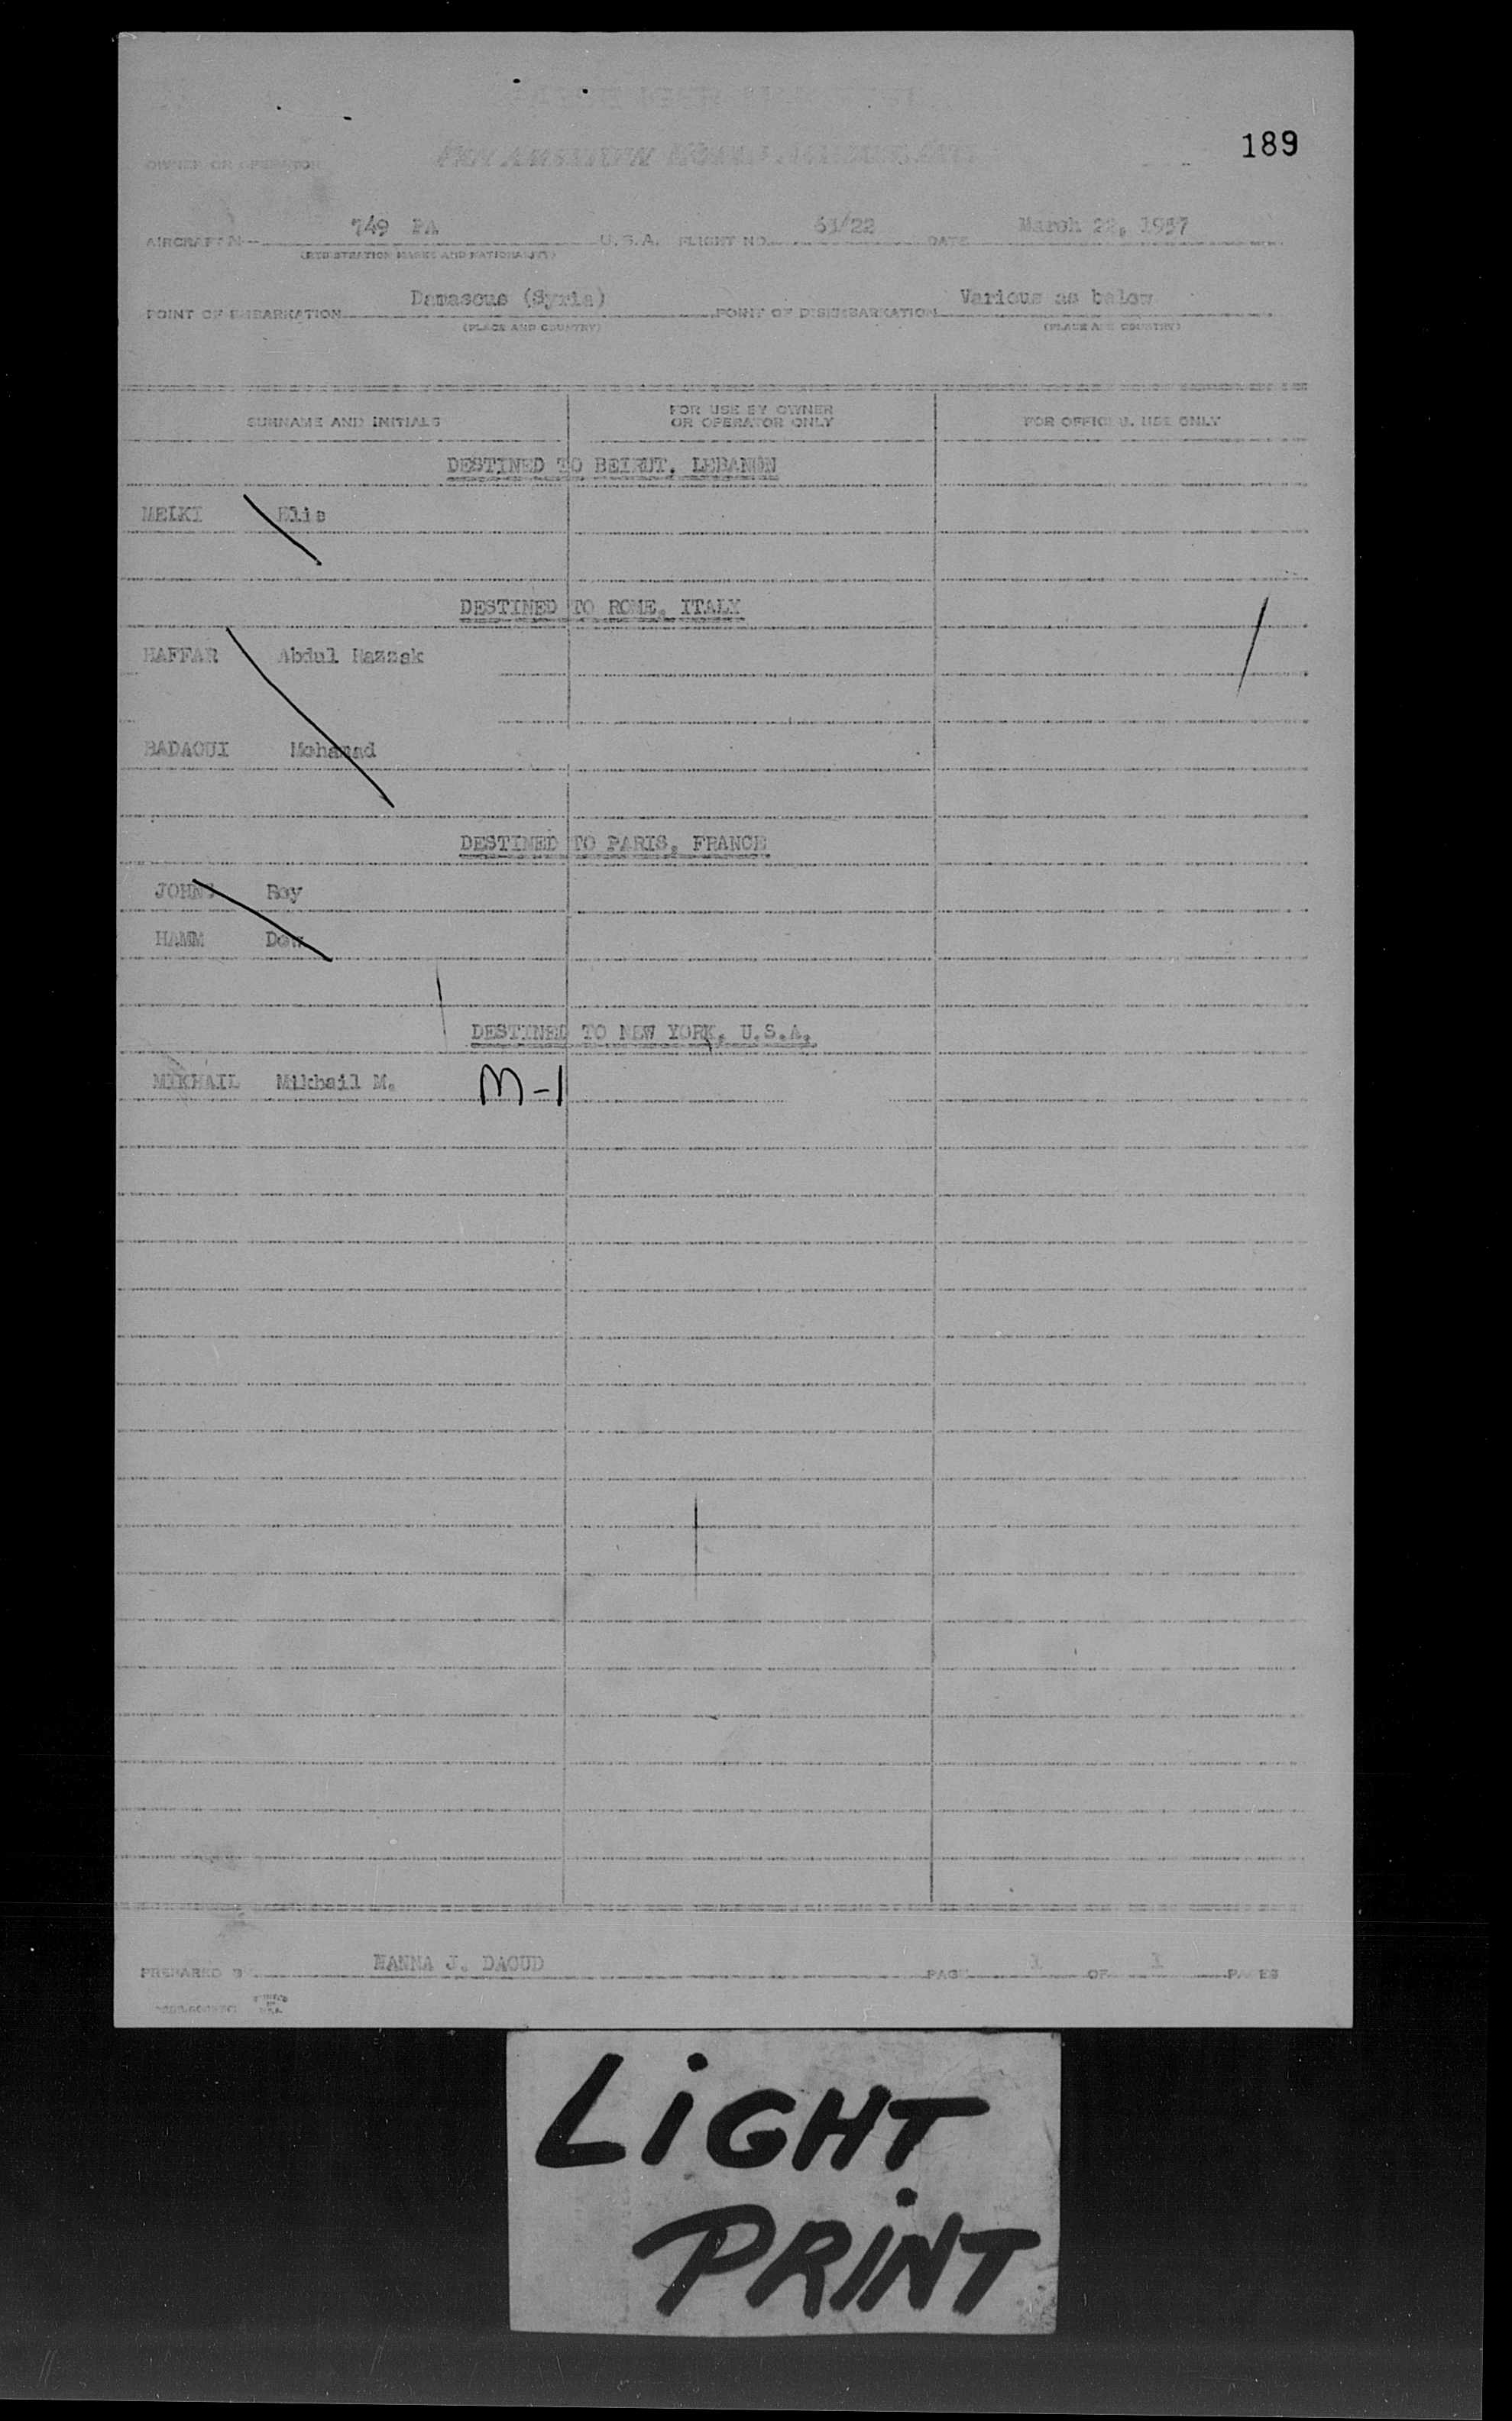 189
PASSENGER MANIFEST
OWNER OR OPERATOR PAN AMERICAN WORLD AIRWAYS, INC.
AIRCRAFT N-- 749 PA U.S.A. FLIGHT NO. 61/22 DATE March 22, 1957
(REGISTRATION MARKS AND NATIONALITY)
POINT OF EMBARKATION Damascus (Syria) POINT OF DISEMBARKATION Various as below
(PLACE AND COUNTRY) (PLACE AND COUNTRY)
SURNAME AND INITIALS FOR USE BY OWNER OR OPERATOR ONLY FOR OFFICIAL USE ONLY
DESTINED TO BEIRUT, LEBANON
MELKI Elie
DESTINED TO ROME, ITALY
HAFFAR Abdul Razzak
BADAOUI Mohamad
DESTINED TO PARIS, FRANCE
JOHN Roy
HAMM Dow
DESTINED TO NEW YORK, U.S.A.
MIKHAIL Mikhail M. M-1
PREPARED BY HANNA J. DAOUD PAGE 1 OF 1 PAGES
PRINTED IN U.S.A.
LiGHT
PRiNT